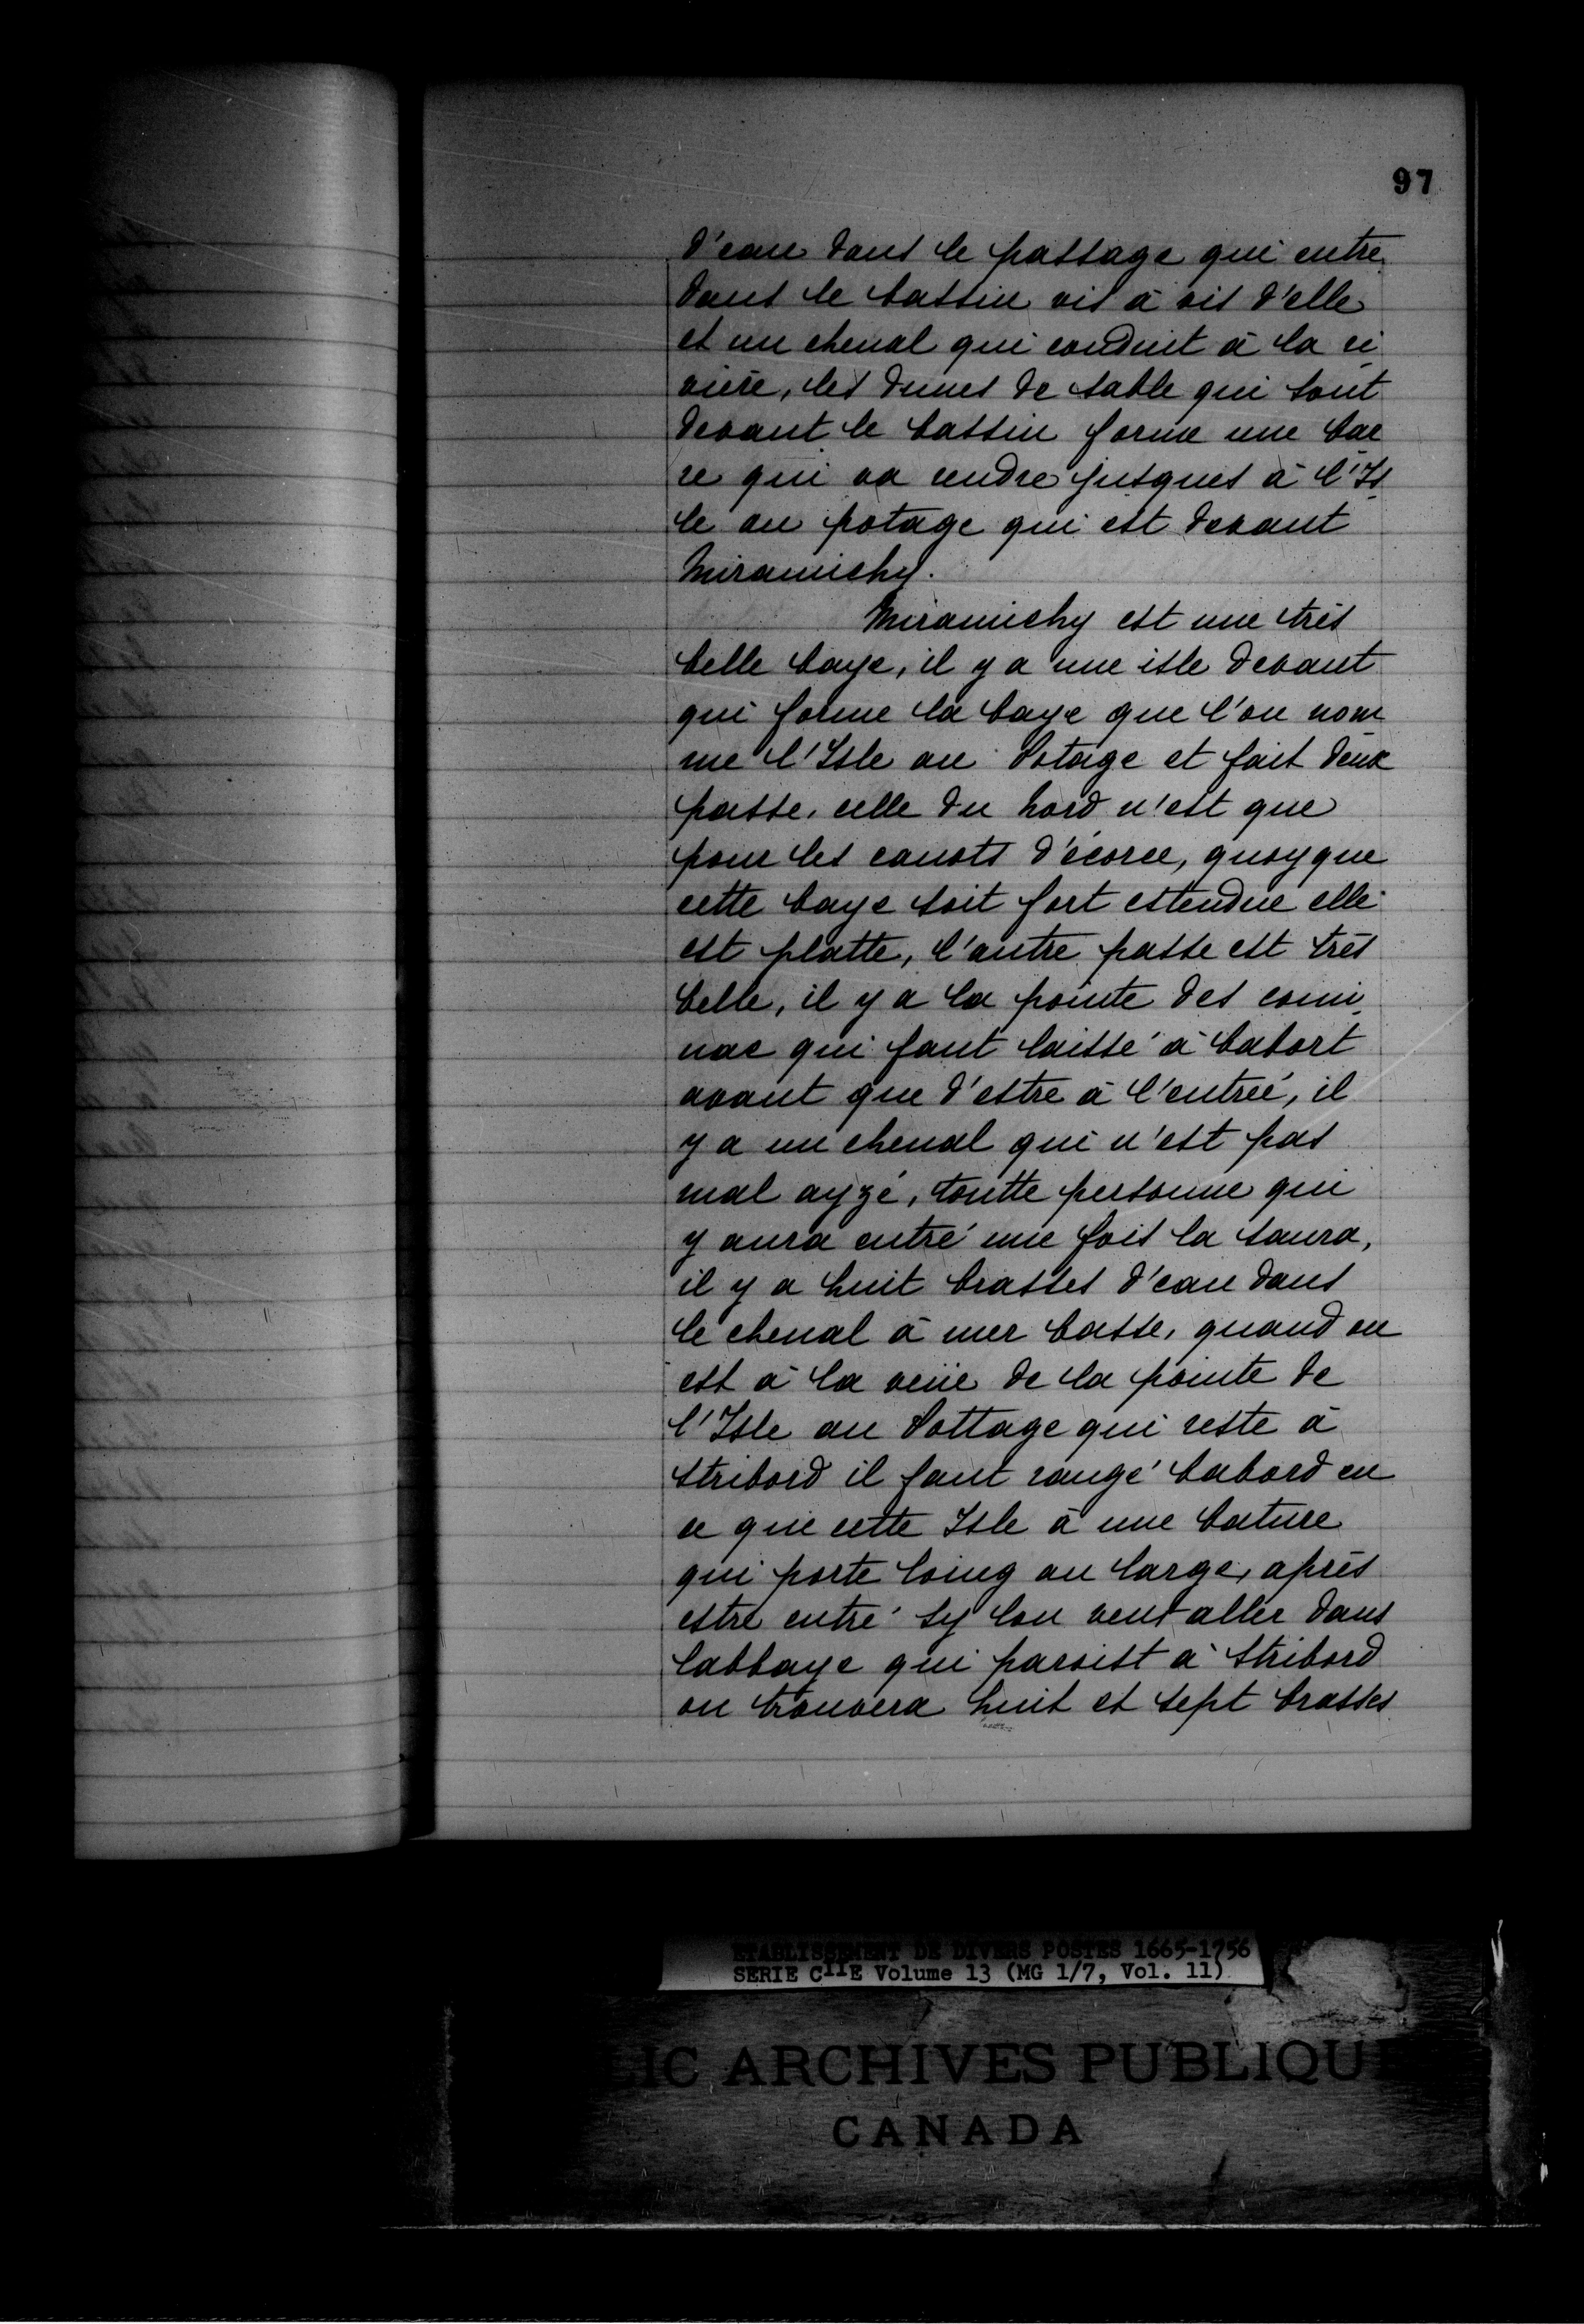 97
d'eau dans le passage qui entre
dans le bassin vis à vis d'elle
et un chenal qui conduit à la ri
vière, les dunes de sable qui sont
devant le bassin forme une bar
re qui va rendre jusques à l'Is
le au potage qui est devant
Miramichy.
Miramichy est une très
belle baye, il y a une isle devant
qui forme la baye que l'on nom
me l'Isle au Potage et fait deux
passe, celle du nord n'est que
pour les canots d'écorce, quoyque
cette baye soit fort estendue elle
est platte, l'autre passe est très
belle, il y a la pointe des coui
nac qui faut laissé à babort
avant que d'estre à l'entrée, il
y a un chenal qui n'est pas
mal ayzé, toutte personne qui
y aura entré une fois la saura,
il y a huit brasses d'eau dans
le chenal à mer basse, quand on
est à la veüe de la pointe de
l'Isle au Pottage qui reste à
stribord il faut rangé babord en
ce que cette Isle à une bature
qui porte loing au large, après
estre entré sy lon veut aller dans
labbaye qui paroist à stribord
on trouvera huit et sept brasses
ETABLISSEMENT DE DIVERS POSTES 1665-1756
SERIE CIIE Volume 13 (MG 1/7, Vol. 11)
LIC ARCHIVES PUBLIQUE
CANADA